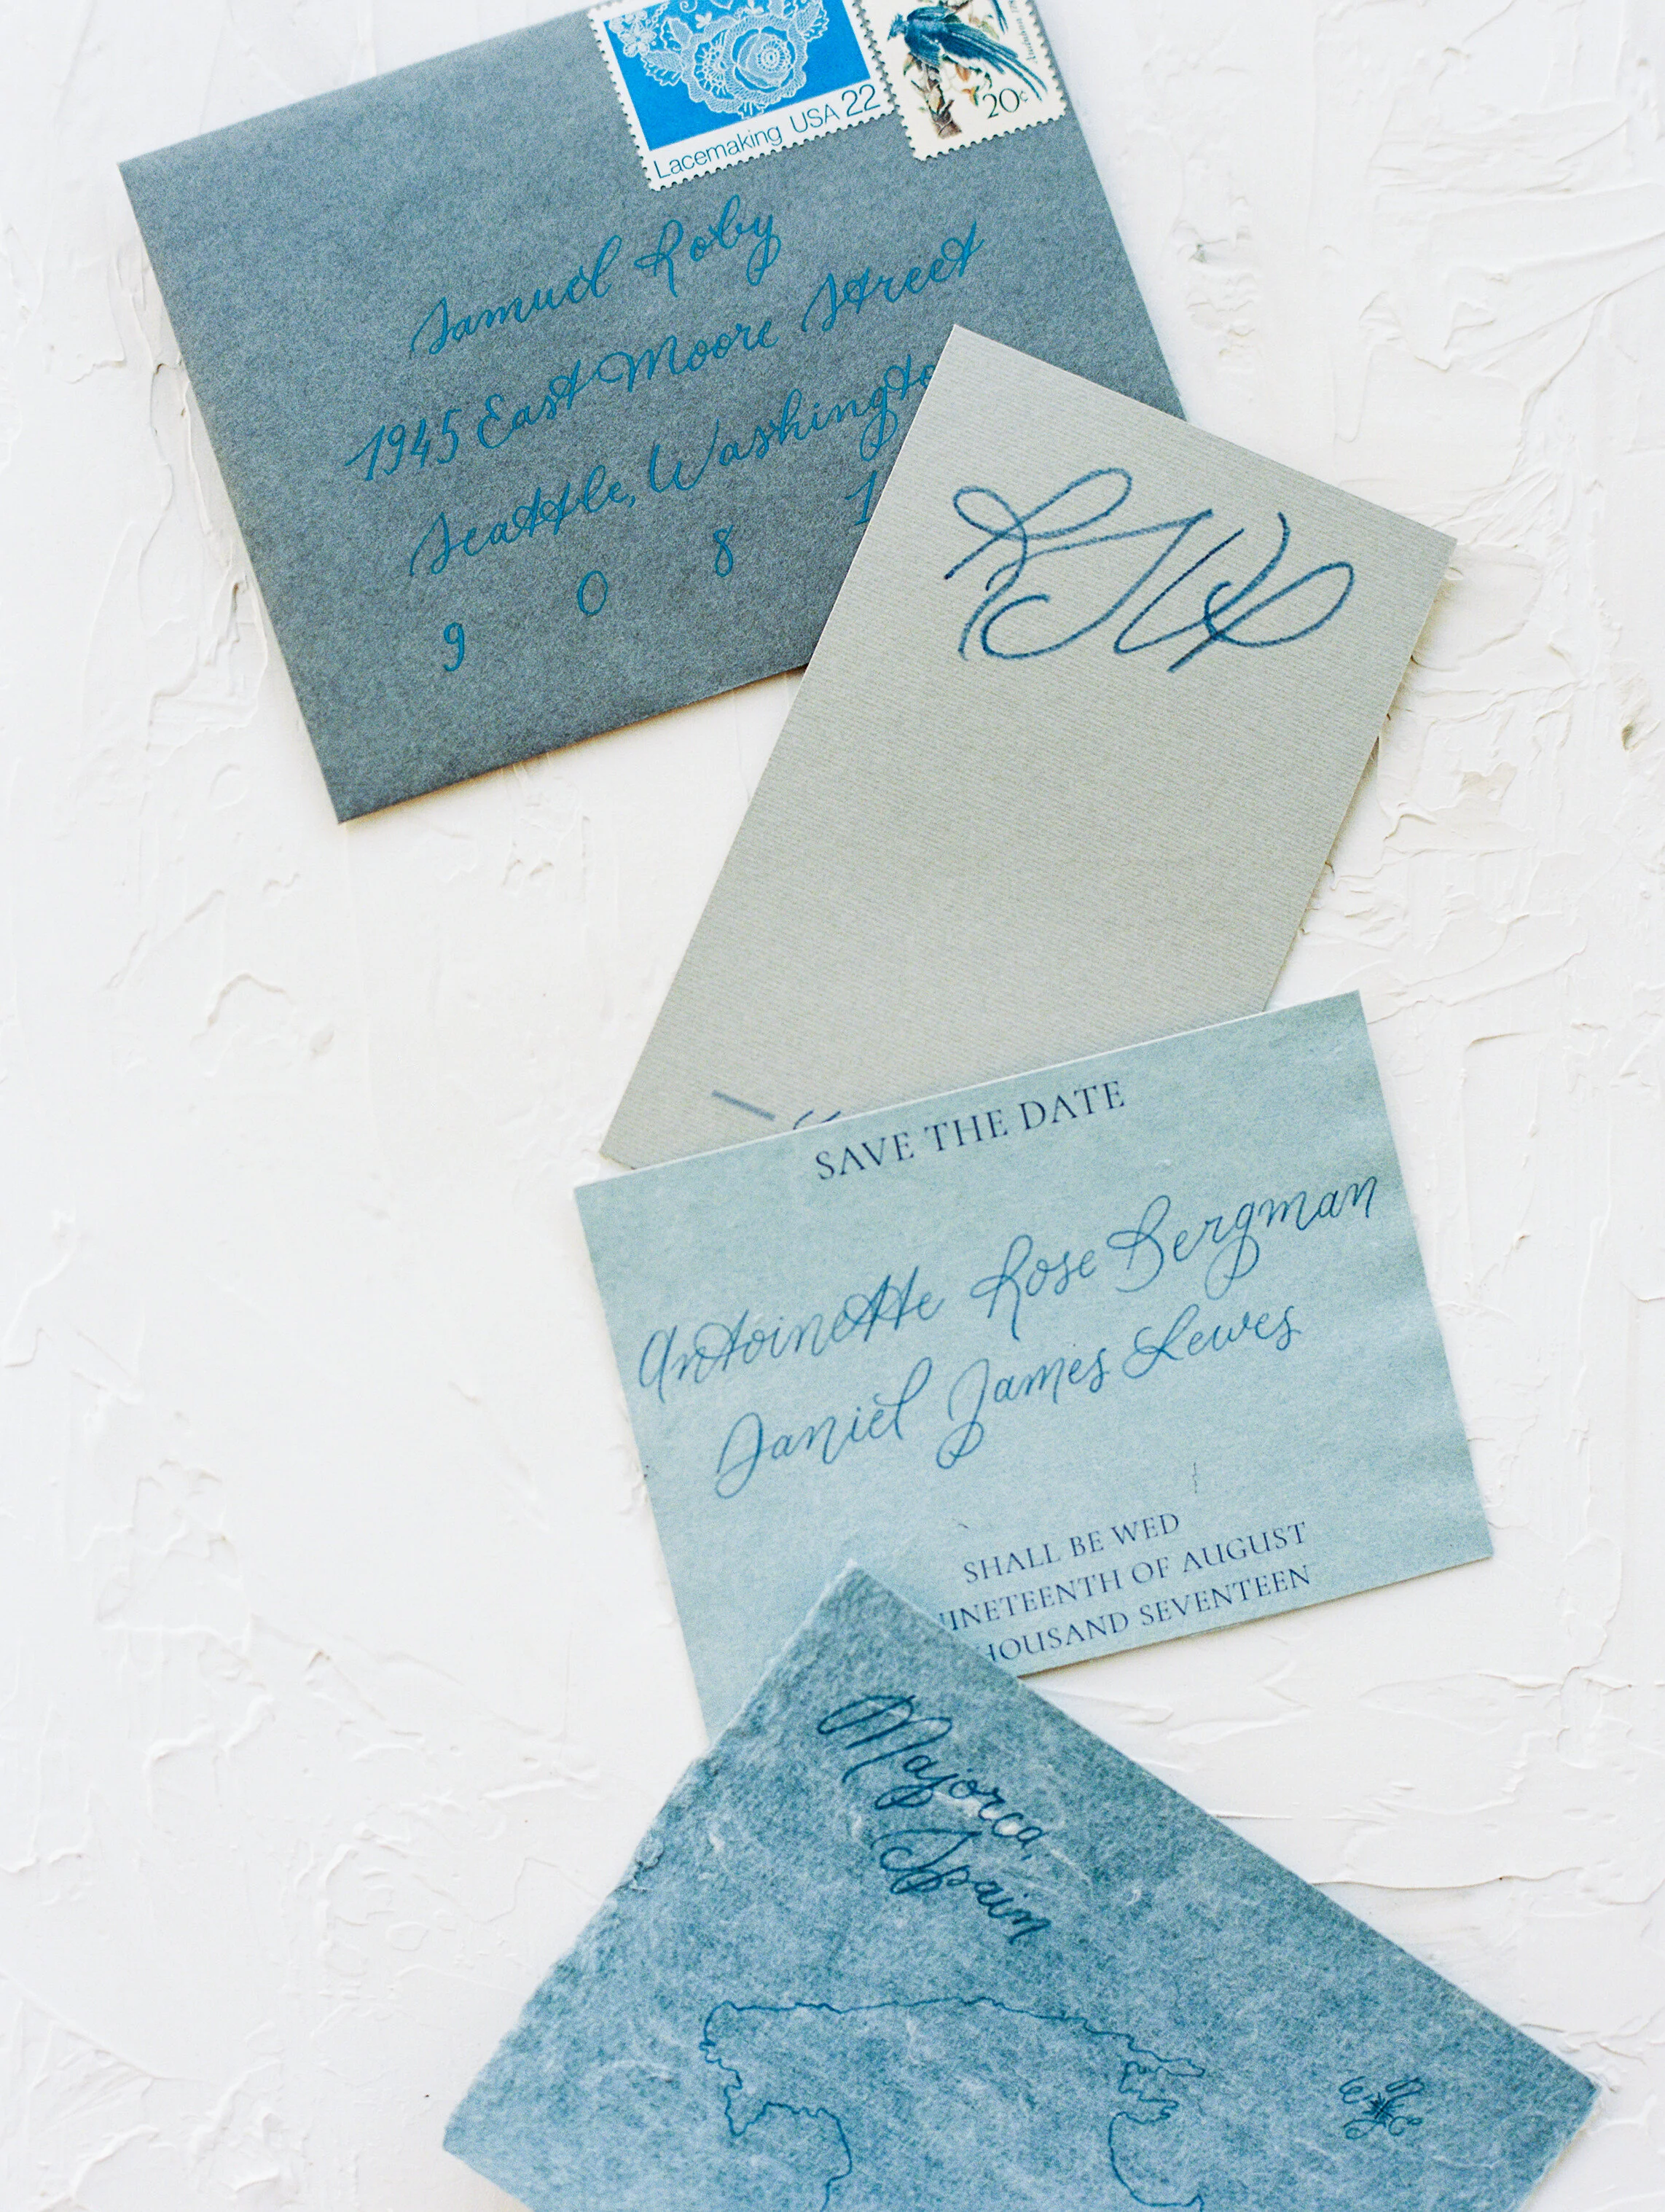 Lacemaking USA 22
20c
Samuel Roby
1945 East Moore Street
Seattle, Washingto
9 0 8 1
RSVP
SAVE THE DATE
Antoinette Rose Bergman
Daniel James Lewes
SHALL BE WED
NINETEENTH OF AUGUST
HOUSAND SEVENTEEN
Majorca,
Spain